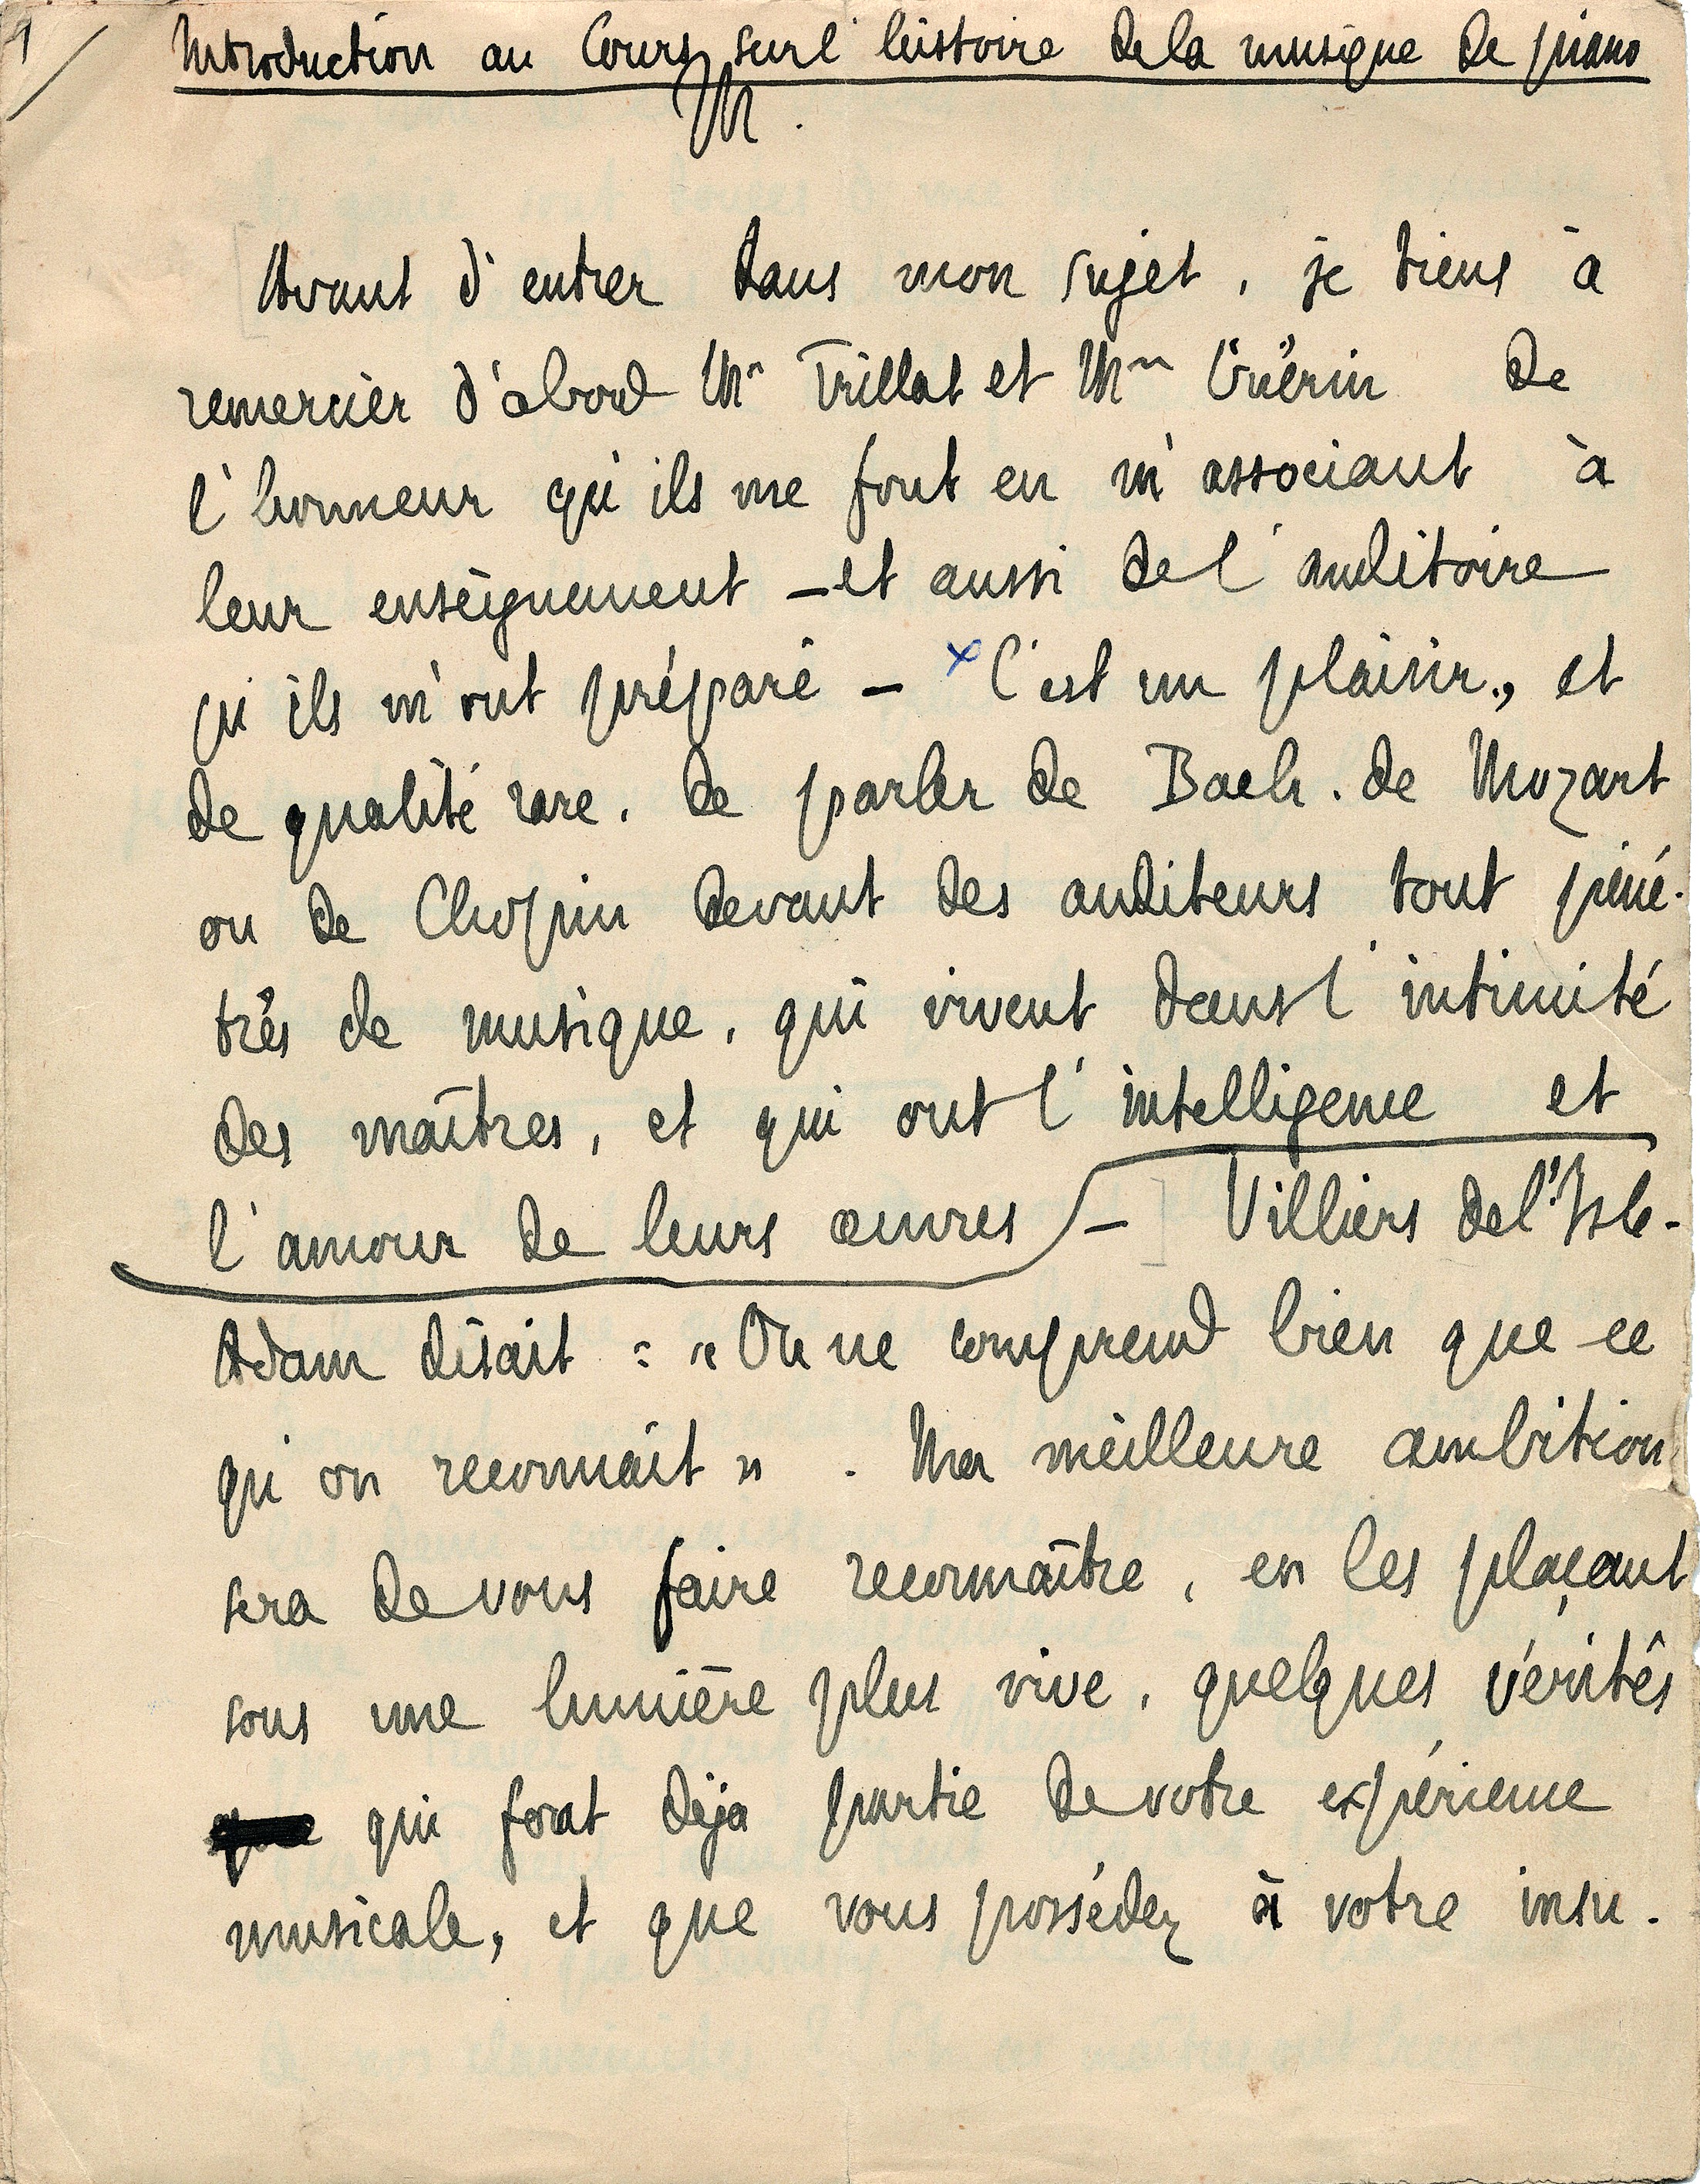 1/
Introduction au Cours sur l'histoire de la musique de piano
M.
Avant d'entrer dans mon sujet, je tiens à
remercier d'abord Mr Trillat et Mm Guérin de
l'honneur qu'ils me font en m'associant à
leur enseignement – et aussi de l'auditoire
qu'ils m'ont préparé – x C'est un plaisir, et
de qualité rare, de parler de Bach, de Mozart
ou de Chopin devant des auditeurs tout péné-
trés de musique, qui vivent dans l'intimité
des maîtres, et qui ont l'intelligence et
l'amour de leurs œuvres – ] Villiers de l'Isle-
Adam disait : « On ne comprend bien que ce
qu'on reconnaît » . Ma meilleure ambition
sera de vous faire reconnaître, en les plaçant
sous une lumière plus vive, quelques vérités
qui font déjà partie de votre expérience
musicale, et que vous possédez à votre insu.